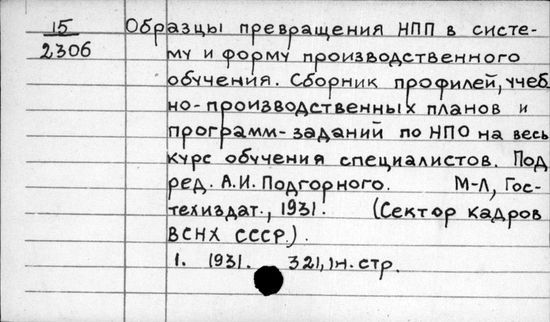 15
2306
Образцы превращения НПП в систе-
му и форму производственного
обучения. Сборник профилей, учеб
но-производственных планов и
программ-заданий по НПО на весь
курс обучения специалистов. Под
ред. А.И. Подгорного. М-Л, Гос-
техиздат., 1931. (Сектор кадров
ВСНХ СССР.).
1. 1931. 321, 1н. стр.